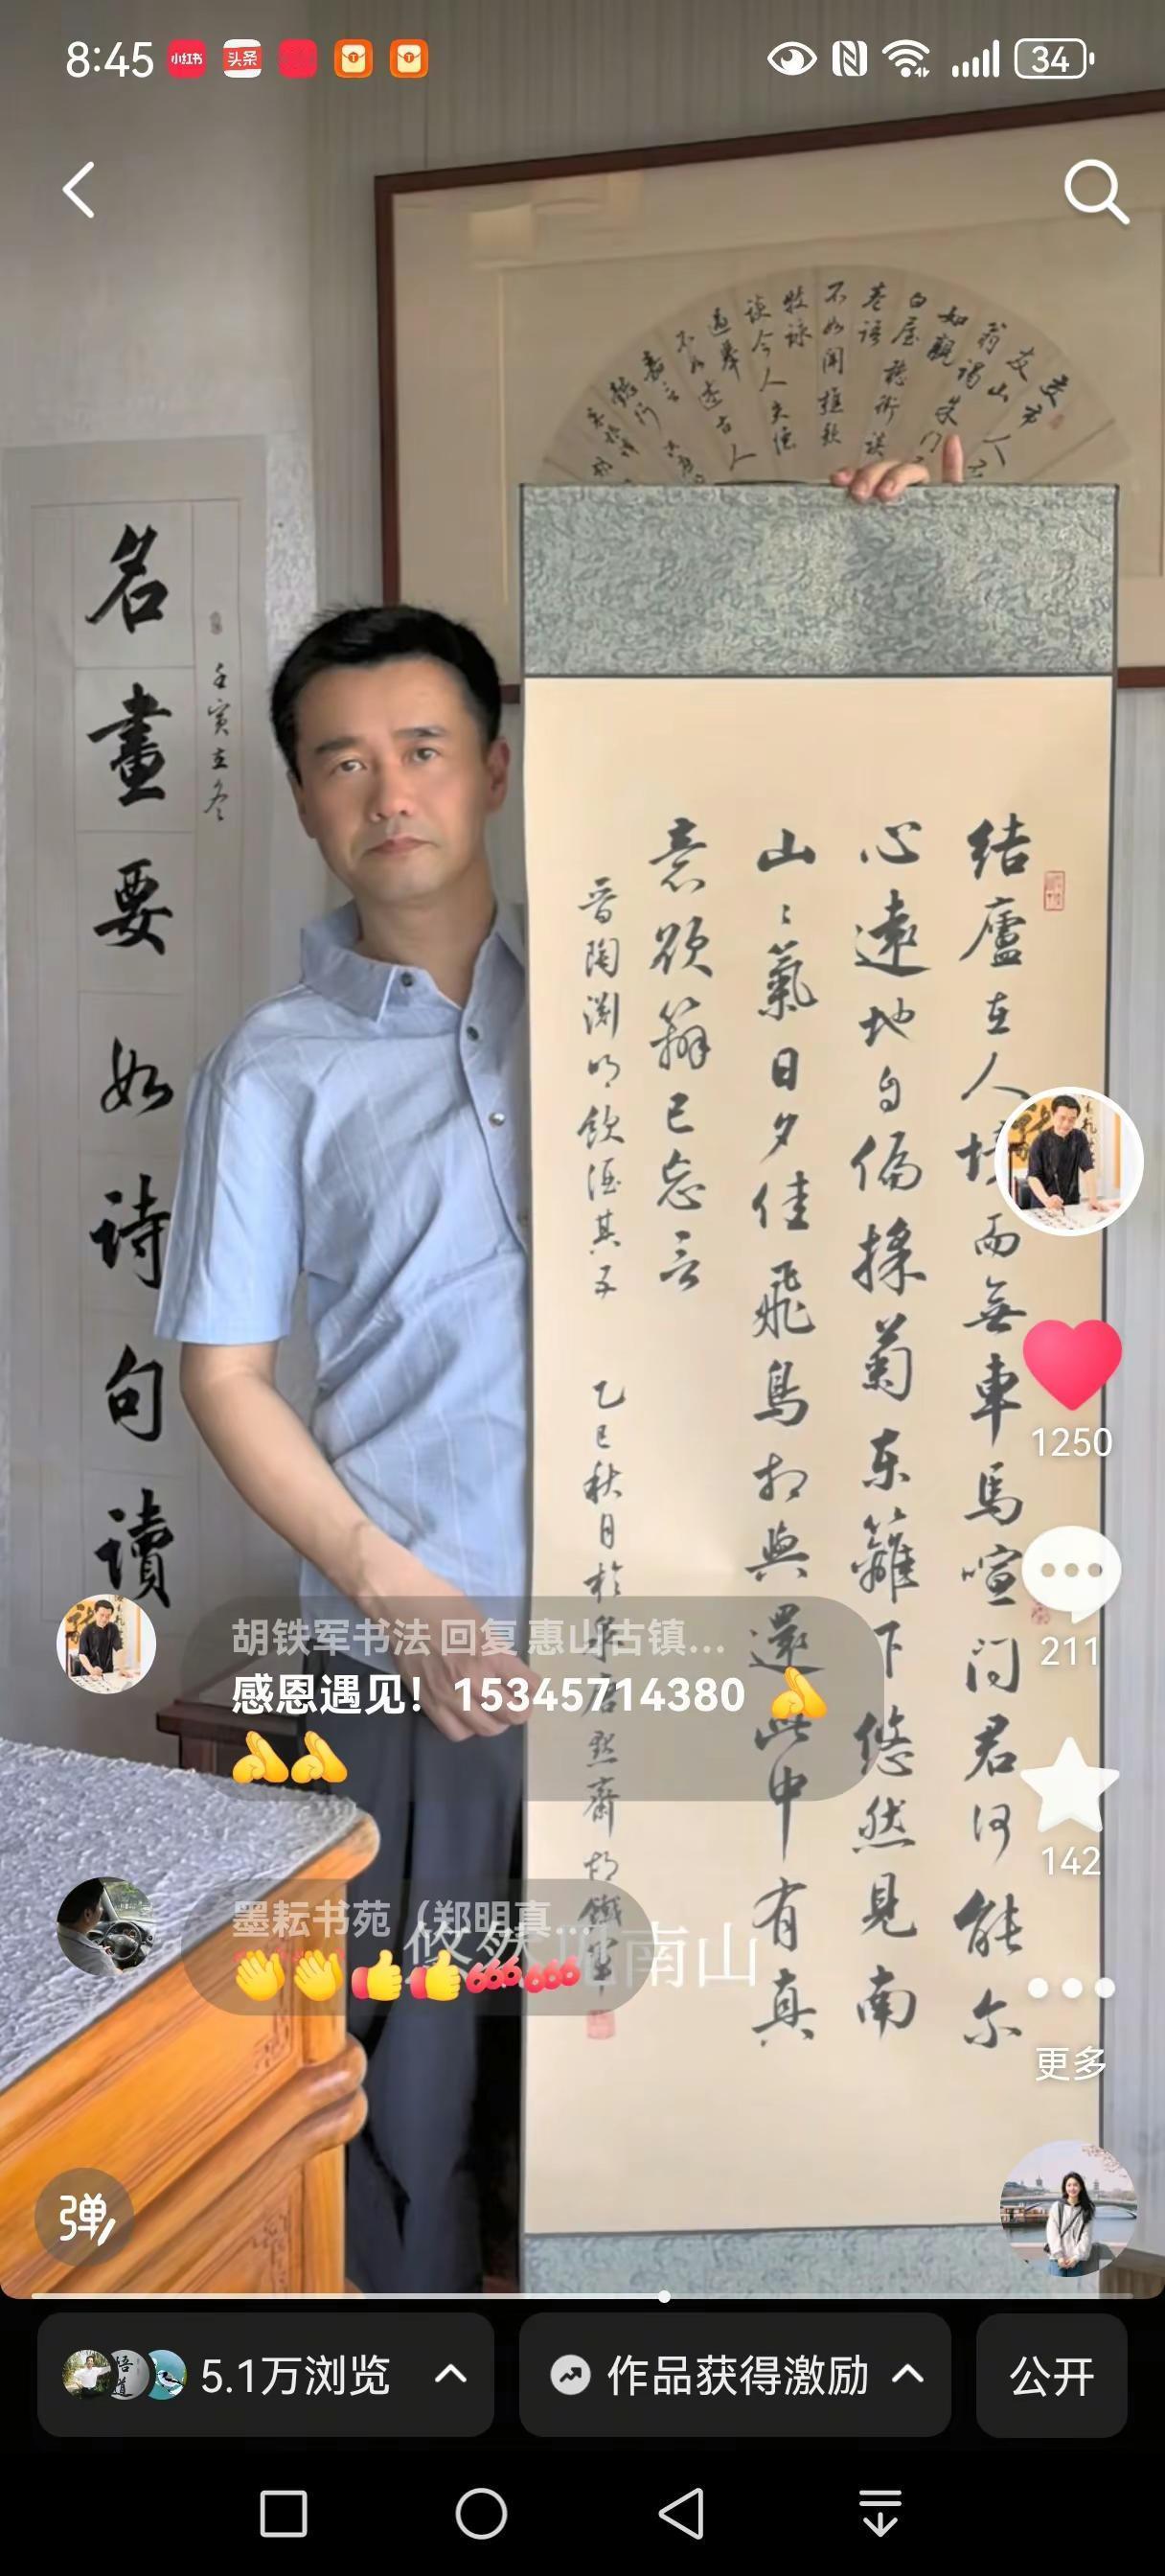 8:45
小红书
头条
34
名畫要如诗句讀
壬寅立冬
结廬在人境而無車馬喧问君何能尔
心遠地自偏採菊东籬下悠然見南
山山氣日夕佳飛鳥相與還此中有真
意欲辩已忘言
晋陶渊明饮酒其五
乙巳秋月於
默齋胡鐵軍
胡铁军书法 回复 惠山古镇...
感恩遇见！ 15345714380
墨耘书苑（郑明真...
悠然见南山
1250
211
142
更多
弹
5.1万浏览
作品获得激励
公开